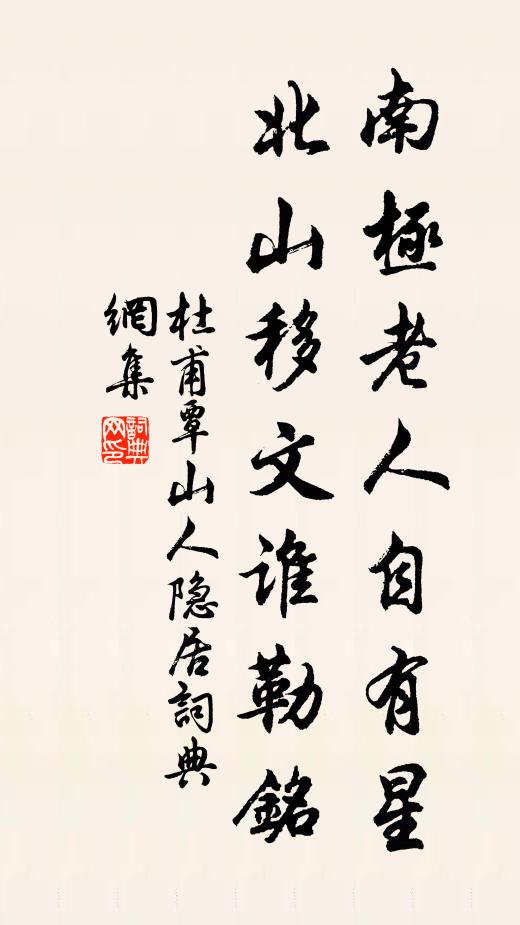 南極老人自有星
北山移文誰勒銘
杜甫覃山人隐居詞典
網集
詞典
网印